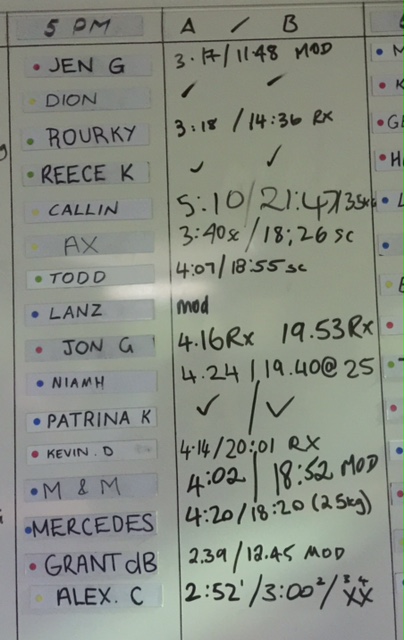 5 PM A / B
JEN G 3.17/11:48 MOD
DION ✓ ✓
ROURKY 3:18 / 14:36 RX
REECE K ✓ ✓
CALLIN 5:10/21:47/35kg
AX 3:40sc/18:26 sc
TODD 4:07/18:55sc
LANZ mod
JON G 4.16Rx 19.53Rx
NIAMH 4.24 | 19.40@25
PATRINA K ✓ / ✓
KEVIN.D 4.14/20:01 RX
M & M 4:02 / 18:52 MOD
MERCEDES 4:20/18:20 (25kg)
GRANT dB 2.39/12.45 MOD
ALEX. C 2:52'/3:00²/